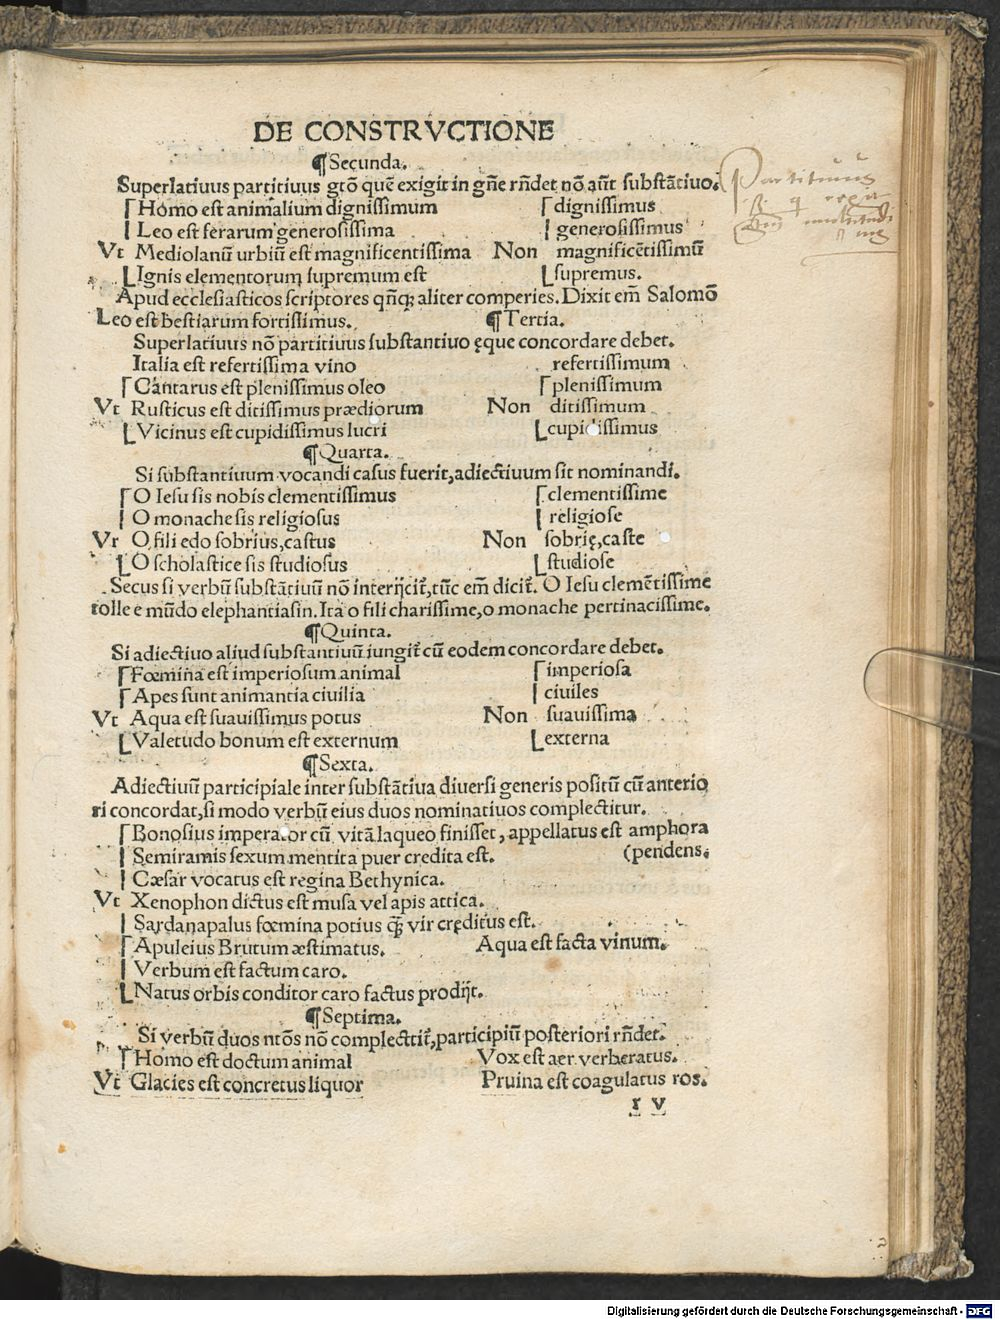 DE CONSTRVCTIONE
¶Secunda.
Superlatiuus partitiuus gtõ quẽ exigit in gñe rñdet nõ aũt substãtiuo.
Homo est animalium dignissimum dignissimus
Leo est ferarum generosissima generosissimus
Vt Mediolanũ urbiũ est magnificentissima Non magnificẽtissimũ
Ignis elementorum supremum est supremus.
Apud ecclesiasticos scriptores qñq; aliter comperies. Dixit em̃ Salomõ
Leo est bestiarum fortissimus. ¶Tertia.
Superlatiuus nõ partitiuus substantiuo ęque concordare debet.
Italia est refertissima vino refertissimum
Cantarus est plenissimus oleo plenissimum
Vt Rusticus est ditissimus prædiorum Non ditissimum
Vicinus est cupidissimus lucri cupidissimus
¶Quarta.
Si substantiuum vocandi casus fuerit, adiectiuum sit nominandi.
O Iesu sis nobis clementissimus clementissime
O monache sis religiosus religiose
Vt O fili edo sobrius, castus Non sobrię, caste
O scholastice sis studiosus studiose
Secus si verbũ substãtiuũ nõ interijcit̃, tũc em̃ dicit̃. O Iesu clemẽtissime
tolle e mũdo elephantiasin. Ita o fili charissime, o monache pertinacissime.
¶Quinta.
Si adiectiuo aliud substantiuũ iungit̃ cũ eodem concordare debet.
Fœmina est imperiosum animal imperiosa
Apes sunt animantia ciuilia ciuiles
Vt Aqua est suauissimus potus Non suauissima
Valetudo bonum est externum externa
¶Sexta.
Adiectiuũ participiale inter substãtiua diuersi generis positũ cũ anterio
ri concordat, si modo verbũ eius duos nominatiuos complectitur.
Bonosius imperator cũ vitã laqueo finisset, appellatus est amphora
Semiramis sexum mentita puer credita est. (pendens.
Cæsar vocatus est regina Bethynica.
Vt Xenophon dictus est musa vel apis attica.
Sardanapalus fœmina potius q̃ vir creditus est.
Apuleius Brutum æstimatus. Aqua est facta vinum.
Verbum est factum caro.
Natus orbis conditor caro factus prodijt.
¶Septima.
Si verbũ duos ntõs nõ complectit̃, participiũ posteriori rñdet.
Homo est doctum animal Vox est aer verberatus.
Vt Glacies est concretus liquor Pruina est coagulatus ros.
r V
Partitiuus
Digitalisierung gefördert durch die Deutsche Forschungsgemeinschaft - DFG